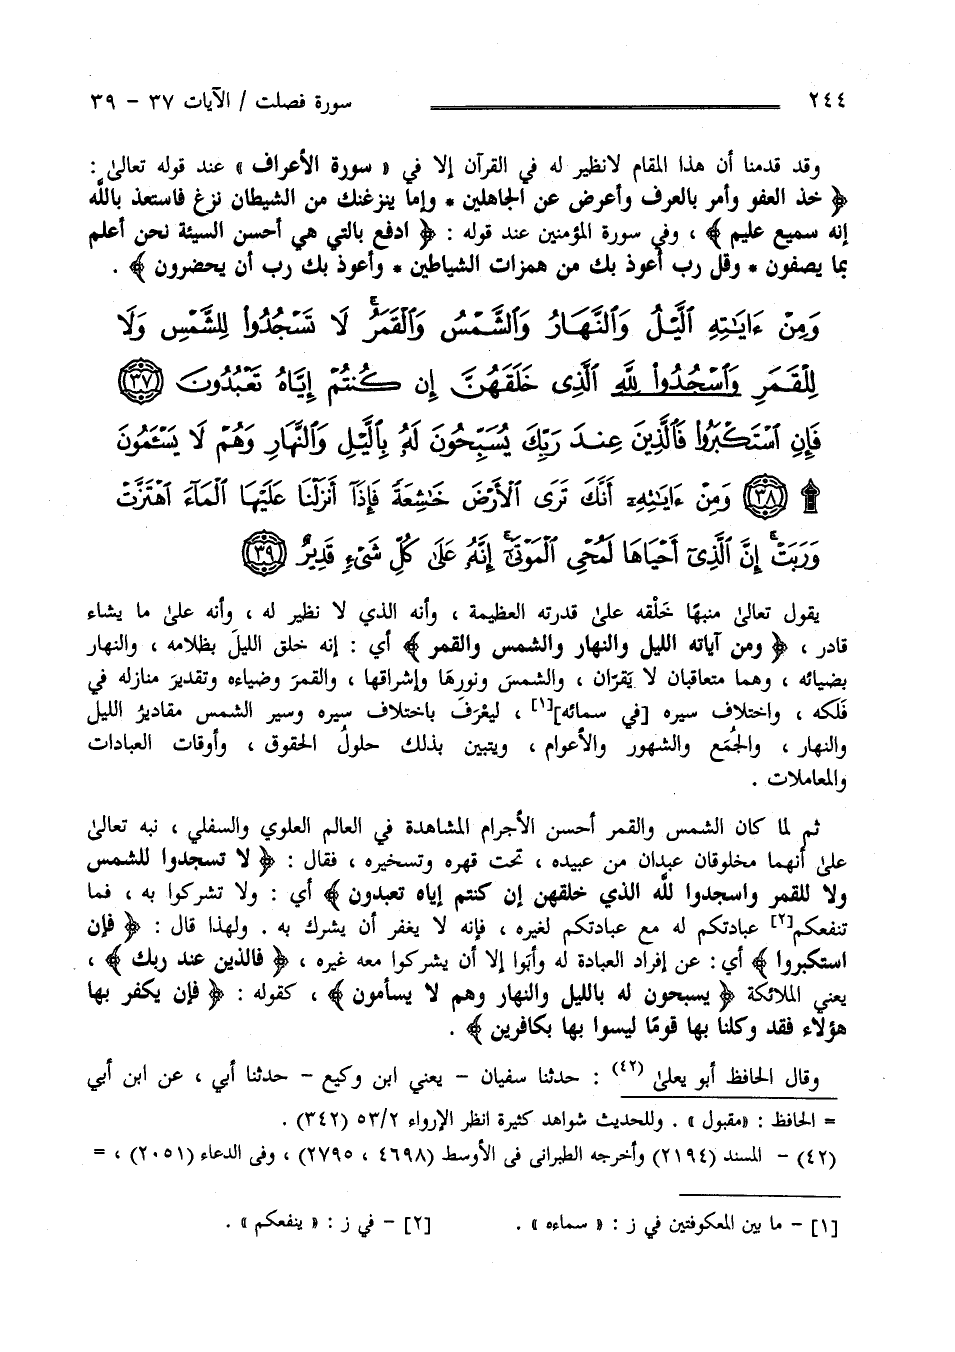 ٢٤٤ سورة فصلت / الآيات ٣٧ - ٣٩
وقد قدمنا أن هذا المقام لانظير له في القرآن إلا في « سورة الأعراف » عند قوله تعالىٰ :
﴿ خذ العفو وأمر بالعرف وأعرض عن الجاهلين * وإما ينزغنك من الشيطان نزغ فاستعذ بالله
إنه سميع عليم ﴾ ، وفي سورة المؤمنين عند قوله : ﴿ ادفع بالتي هي أحسن السيئة نحن أعلم
بما يصفون * وقل رب أعوذ بك من همزات الشياطين * وأعوذ بك رب أن يحضرون ﴾ .
وَمِنْ ءَايَـٰتِهِ ٱلَّيْلُ وَٱلنَّهَارُ وَٱلشَّمْسُ وَٱلْقَمَرُ ۚ لَا تَسْجُدُوا۟ لِلشَّمْسِ وَلَا
لِلْقَمَرِ وَٱسْجُدُوا۟ لِلَّهِ ٱلَّذِى خَلَقَهُنَّ إِن كُنتُمْ إِيَّاهُ تَعْبُدُونَ ٣٧
فَإِنِ ٱسْتَكْبَرُوا۟ فَٱلَّذِينَ عِندَ رَبِّكَ يُسَبِّحُونَ لَهُۥ بِٱلَّيْلِ وَٱلنَّهَارِ وَهُمْ لَا يَسْـَٔمُونَ
۩ ٣٨ وَمِنْ ءَايَـٰتِهِۦٓ أَنَّكَ تَرَى ٱلْأَرْضَ خَـٰشِعَةً فَإِذَآ أَنزَلْنَا عَلَيْهَا ٱلْمَآءَ ٱهْتَزَّتْ
وَرَبَتْ ۚ إِنَّ ٱلَّذِىٓ أَحْيَاهَا لَمُحْىِ ٱلْمَوْتَىٰٓ ۚ إِنَّهُۥ عَلَىٰ كُلِّ شَىْءٍ قَدِيرٌ ٣٩
يقول تعالىٰ منبهًا خَلْقه علىٰ قدرته العظيمة ، وأنه الذي لا نظير له ، وأنه علىٰ ما يشاء
قادر ، ﴿ ومن آياته الليل والنهار والشمس والقمر ﴾ أي : إنه خلق الليلَ بظلامه ، والنهار
بضيائه ، وهما متعاقبان لا يَقرّان ، والشمسَ ونورهَا وإشراقها ، والقمرَ وضياءه وتقديرَ منازله في
فَلكه ، واختلاف سيره [في سمائه][١] ، ليعْرَفَ باختلاف سيره وسير الشمس مقاديرُ الليل
والنهار ، والجُمَع والشهور والأعوام ، ويتبين بذلك حلولُ الحقوق ، وأوقات العبادات
والمعاملات .
ثم لما كان الشمس والقمر أحسن الأجرام المشاهدة في العالم العلوي والسفلي ، نبه تعالىٰ
علىٰ أنهما مخلوقان عبدان من عبيده ، تحت قهره وتسخيره ، فقال : ﴿ لا تسجدوا للشمس
ولا للقمر واسجدوا لله الذي خلقهن إن كنتم إياه تعبدون ﴾ أي : ولا تشركوا به ، فما
تنفعكم[٢] عبادتكم له مع عبادتكم لغيره ، فإنه لا يغفر أن يشرك به . ولهذا قال : ﴿ فإن
استكبروا ﴾ أي: عن إفراد العبادة له وأبَوا إلا أن يشركوا معه غيره ، ﴿ فالذين عند ربك ﴾ ،
يعني الملائكة ﴿ يسبحون له بالليل والنهار وهم لا يسأمون ﴾ ، كقوله : ﴿ فإن يكفر بها
هؤلاء فقد وكلنا بها قومًا ليسوا بها بكافرين ﴾ .
وقال الحافظ أبو يعلىٰ (٤٢) : حدثنا سفيان - يعني ابن وكيع - حدثنا أبي ، عن ابن أبي
= الحافظ : «مقبول» . وللحديث شواهد كثيرة انظر الإرواء ٥٣/٢ (٣٤٢) .
(٤٢) - المسند (٢١٩٤) وأخرجه الطبرانى فى الأوسط (٤٦٩٨ ، ٢٧٩٥) ، وفى الدعاء (٢٠٥١) ، =
[١] - ما بين المعكوفتين في ز : « سماءه » . [٢] - في ز : « ينفعكم » .